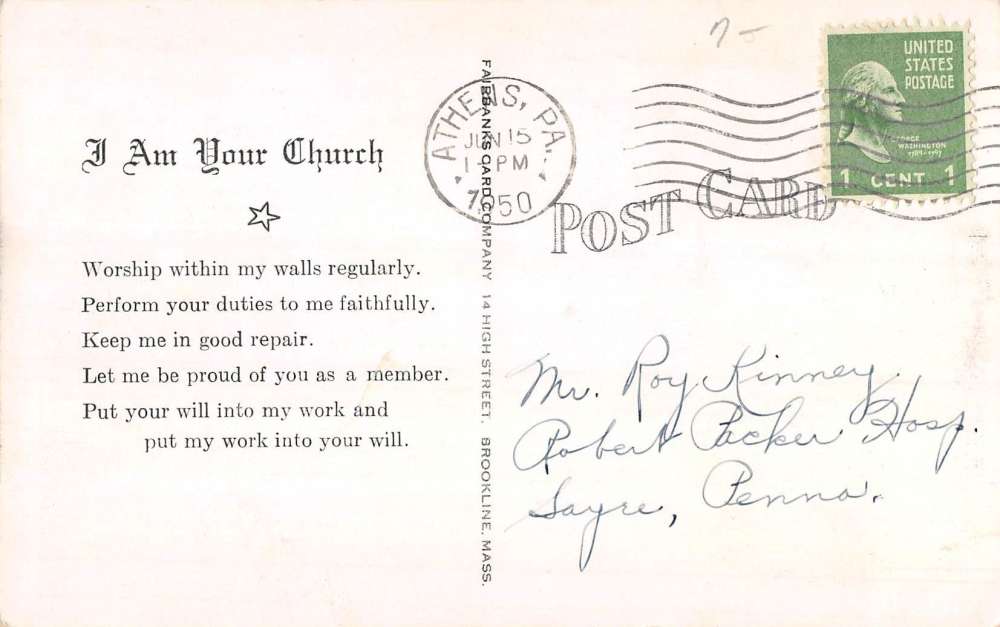 I Am Your Church
Worship within my walls regularly.
Perform your duties to me faithfully.
Keep me in good repair.
Let me be proud of you as a member.
Put your will into my work and
put my work into your will.
FAIRBANKS CARD COMPANY 14 HIGH STREET, BROOKLINE, MASS.
ATHENS, PA.
JUN 15
PM
1950
7-
UNITED
STATES
POSTAGE
GEORGE
WASHINGTON
1789-1797
1 CENT 1
POST CARD
Mr. Roy Kinney
Robert Packer Hosp.
Sayre, Penna.